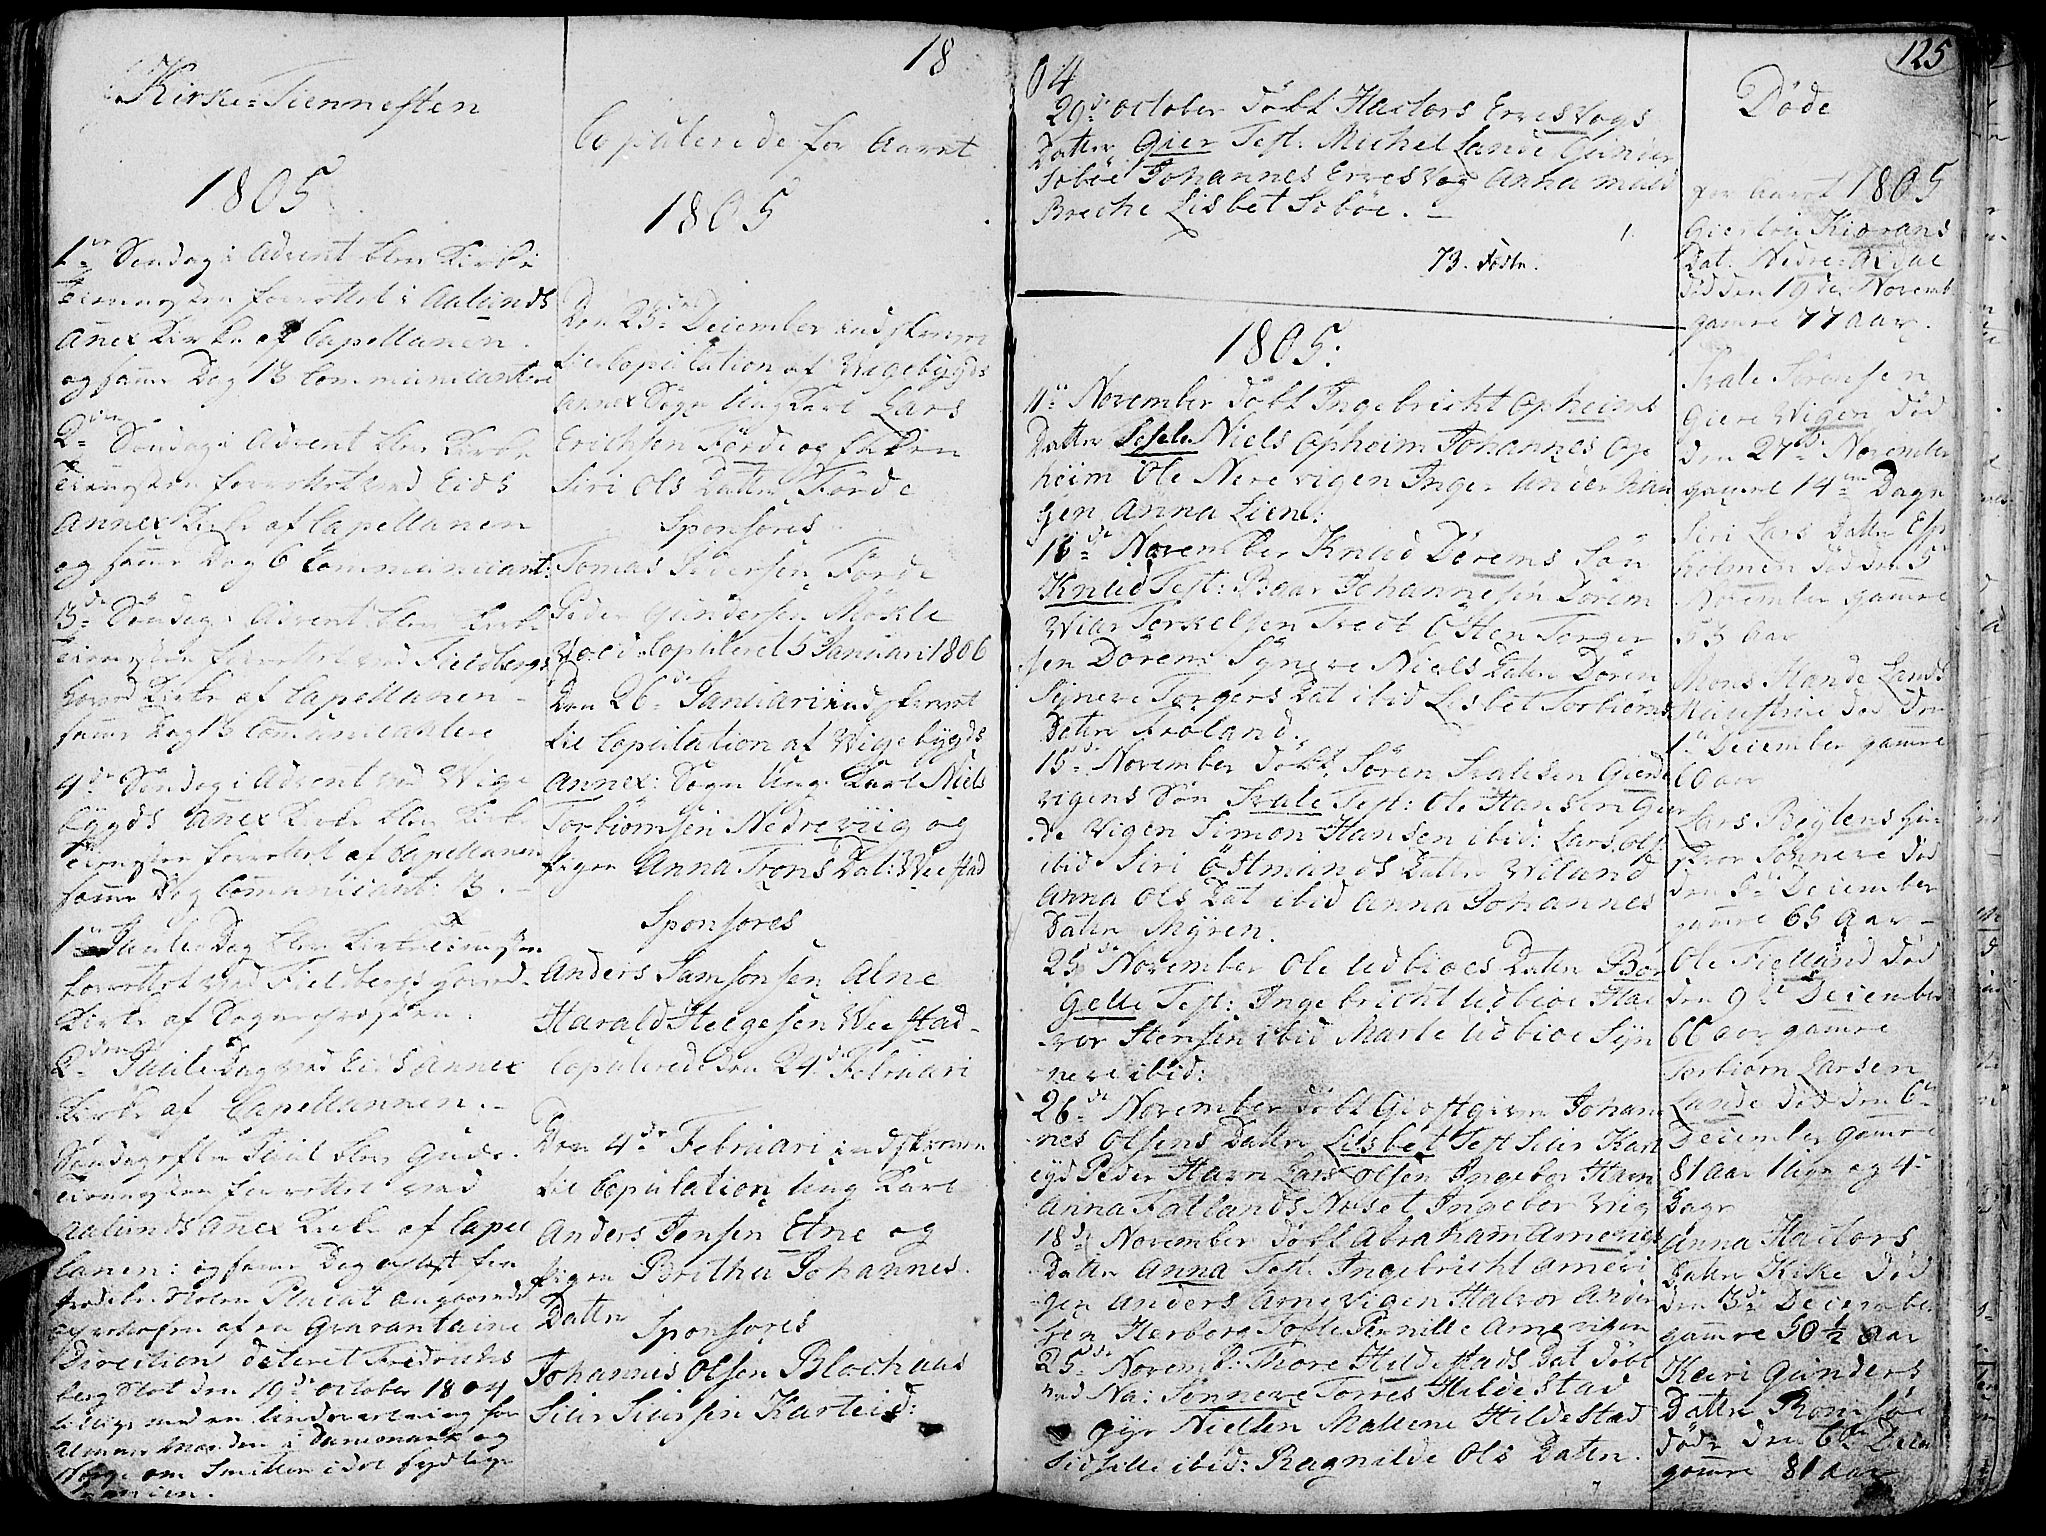 18
Kirke-Tiennesten
1805
1te Søndag i Advent blev Kirke
Tiennesten forrettet i Aalunds
Anex Kirke af Capellanen.
og samme Dag 13 Communicantere
2den Søndag i Advent blev Kirke
Tiennesten forrettet ved Eids
Annex Kirke af Capellanen
og samme Dag 6 Communicant:
3de Søndag i Advent blev Kirke
Tiennesten forrettet ved Fieldbergs
hoved Kirke af Capellanen
samme Dag 13 Communicantere
4de Søndag i Advent ved Wige
bygds Anex Kirke blev Kirke
Tiennesten forrettet af Capellanen
samme Dag Communicant: 13.
1te Juule Dag blev Kirketiennesten
forrettet ved Fieldbergs hoved
Kirke af Sognepræsten.
2den Juule Dag ved Eids Annex
Kirke af Capellannen.
Søndag efter Juul blev Guds
Tiennesten forrettet ved
Aalunds Anex Kirke af Capel
lanen: og samme Dag oplæst fra
Prædike Stolen Placat angaaende
oprettelsen af en Qvarantaine
Direction dateret Fredrichs
berg Slot den 19de October 1804
tillige med en Underretning for
Almue Manden i Dannemark og
Norge om Smitten i det sydlige
Copulerede for Aaret
1805
Den 23de December indskreven
til Copulation af Wigebygds
Annex Sogn Ung Karl Lars
Erichsen Førde og Enken
Siri Ols Datter Førde
Sponsores
Tomas Sidersen Førde
Peder Gundersen Møkle
Copuleret 5 Januari 1806
Den 26de Januari indskrevet
til Copulation af Wigebygds
Annex: Sogn Ung Karl Niels
Torbiornsen Nedreviig og
Pigen Anna Trons Dat: Weestad
Sponsores
Anders Samsonsen Alne
Harald Helgesen Weestad
Copulerede den 24de Februari
Den 4de Februari indskreven
til Copulation Ung Karl
Anders Jensen Etne og
Pigen Britha Johannes
Datter
Sponsores
Johannes Olsen Blochuus
Siur Siursen Karteid:
04
29de October døbt Hactors Erresvogs
Datter Gier Test: Michel Lande Gunder
Søbøe Johannes Erresvog Anna Mald
Breche Lisbet Søbøe.
73. Fødte.
1805:
11te November døbt Ingebricht Opheims
Datter Sesele Niels Opheim Johannes Op
heim Ole Nerevigen Inger Underhau
gen Anna Liene:
16de November Knud Dørems Søn
Knud Test: Baar Johannesen Dørem
Wiar Torkelsen Tvedt Østen Torger
sen Dørem Synere Niels Datter Døren
Synere Torgers Dat ibid Lisbet Torbiorns
Datter Froland.
15de November døbt Søren Svalesen Gierde
vigens Søn Svale Test: Ole Hansen Gier
de Vigen Simon Hansen ibid: Lars Ols
ibid Siri Østmands Datter Wiland
Anna Ols Dat ibid Anna Johannes
Datter Myren.
25de November Ole Udbiøes Datter Bor
Gelle Test: Ingebricht Udbioe Hal
vor Stensen ibid Marte Udbioe Syn
neve ibid:
26de November døbt Giestgiver Johan
nes Olsens Datter Lisbet Test Siur Kart
eyd Peder Havn Lars Olsen Ingebor Havn
Anna Fatlands Næset Ingebor Viig
18de November døbt Abraham Amenes
Datter Anna Test: Ingebricht Amevi
gen Anders Amevigen Halvor Ander
sen Herborg Tofte Pernille Amevigen
25de November: Thore Hildestads Dat døbt
med Na: Sønneve Torres Hildestad
Gyr Nielsen Mallene Hildestad
Sidselle ibid: Ragnilde Ols Datter.
125
Døde
for Aaret 1805
Gierlou Kiorans
Dat. Nedre-Ølue
død den 19de Novemb
gamre 77 aar.
Svale Sørensen
Giere Wigen død
den 27de November
gamre 14 Dage
Siri Lars Datter Esp
holmen død den 5
November gamre
53 aar
Mons Hande Lands
død den
1te December gamre
60 aar
Lars Bøylens Hu
stroe Sønneve død
den 5te December
gamre 65 Aar
Ole Fielland død
den 9de December
66 aar gamre
Torbiorn Larsen
Lande død den 6te
December gamre
81 Aar 1 Uge og 4
Dage
Anna Hactors
Datter Kike død
den 3de December
gamre 50 1/2 Aar
Kari Gunders
Datter Romsøe
døde den 6te Decem
gamre 81 aar